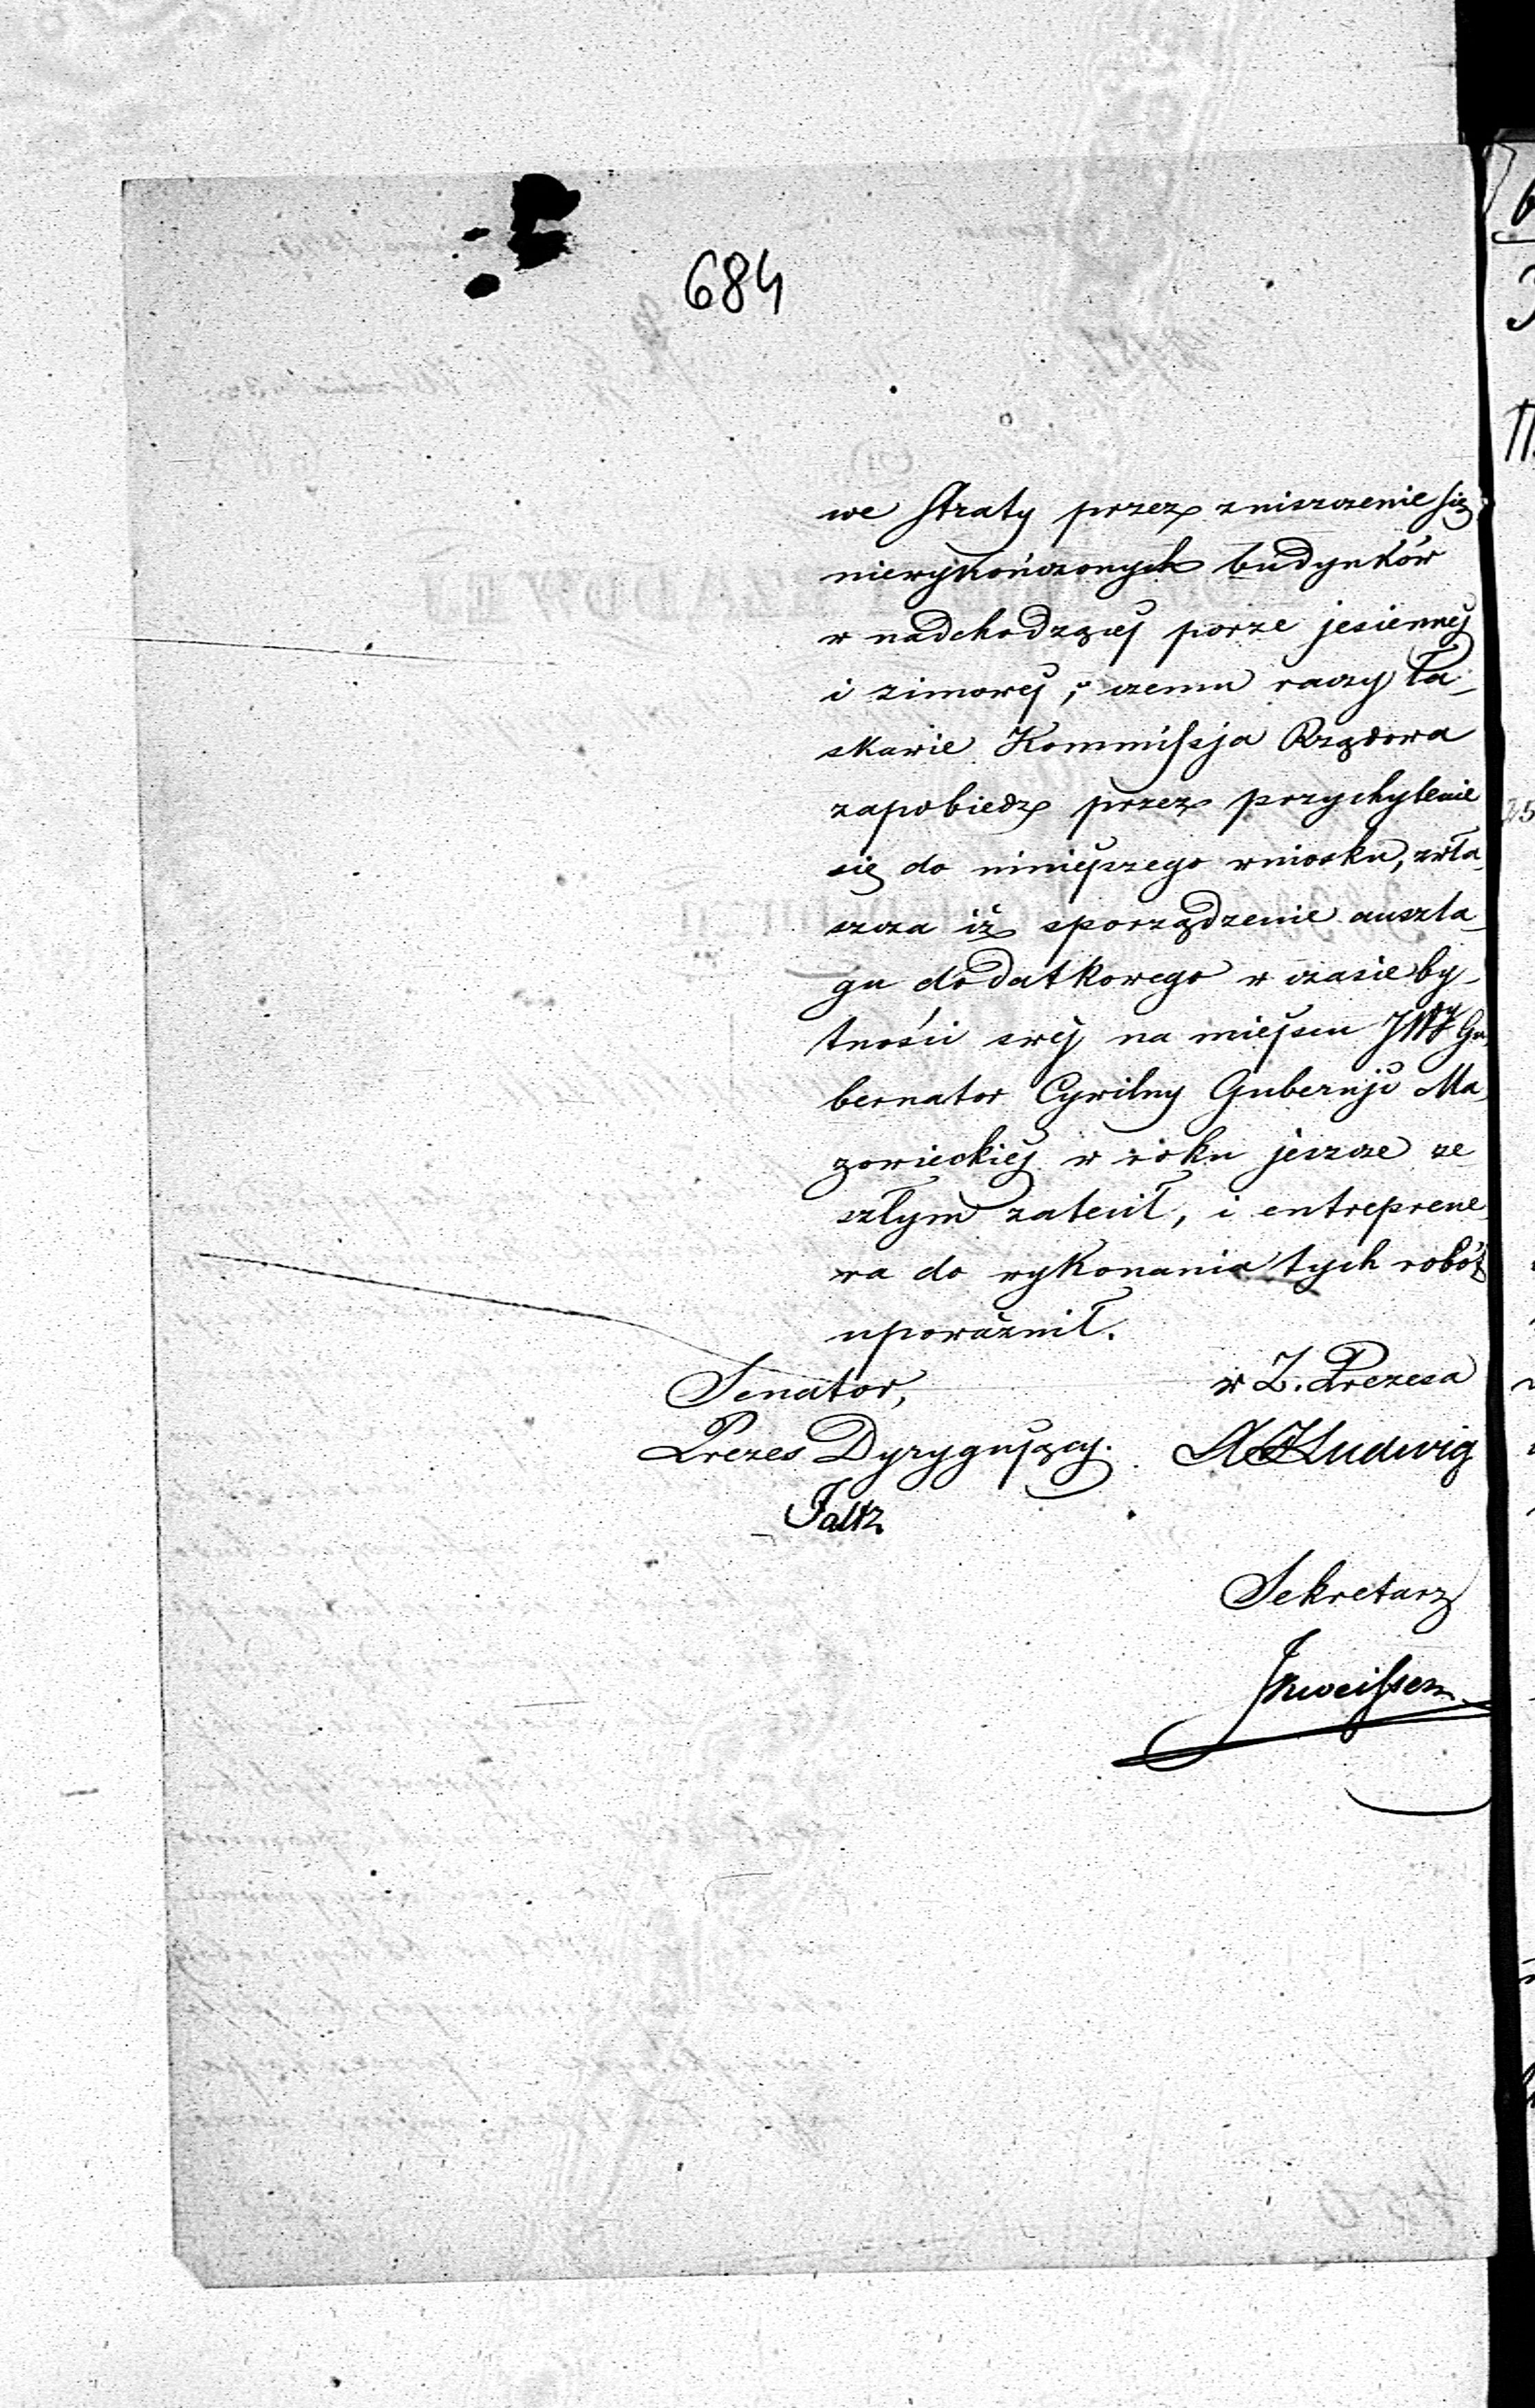 684
we straty przez zniszczenie się
niewykończonych budynków
w nadchodzącej porze jesiennej
i zimowej, czemu raczy ła-
skawie Kommissja Rządowa
zapobiedz przez przychylenie
się do niniejszego wniosku, zwła-
szcza iż sporządzenie anszla-
gu dodatkowego w czasie by-
tności swej na miejscu JW Gu-
bernator Cywilny Gubernji Ma-
zowieckiej w roku jeszcze ze-
szłym zalecił, i entreprene-
ra do wykonania tych robót
upoważnił.
Senator, w Z. Prezesa
Prezes Dyrygujący. Ludwig
Faltz
Sekretarz